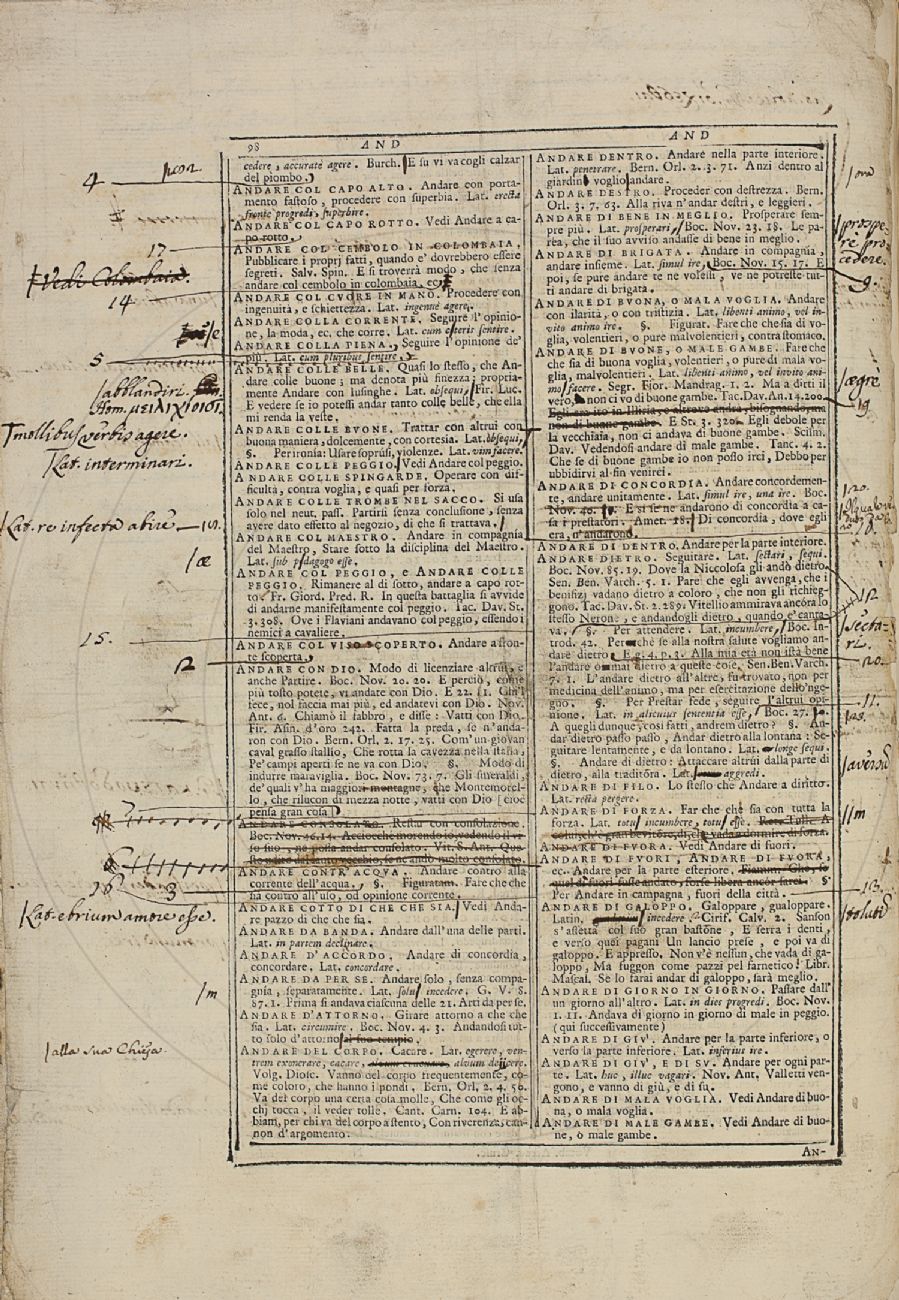 98 AND
AND
cedere, accuratè agere. Burch. E su vi va cogli calzar
del piombo.
ANDARE COL CAPO ALTO. Andare con porta-
mento fastoso, procedere con superbia. Lat. erecta
fronte progredi, superbire.
ANDARE COL CAPO ROTTO. Vedi Andare a ca-
po rotto.
ANDARE COL CEMBOLO IN COLOMBAIA,
Pubblicare i proprj fatti, quando e' dovrebbero essere
segreti. Salv. Spin. E si troverrà modo, che senza
andare col cembolo in colombaia, ec.
ANDARE COL CUORE IN MANO. Procedere con
ingenuità, e schiettezza. Lat. ingenuè agere.
ANDARE COLLA CORRENTE. Seguire l'opinio-
ne, la moda, ec. che corre. Lat. cum ceteris sentire.
ANDARE COLLA PIENA. Seguire l'opinione de'
più. Lat. cum pluribus sentire.
ANDARE COLLE BELLE. Quasi lo stesso, che An-
dare colle buone; ma denota più finezza; propria-
mente Andare con lusinghe. Lat. obsequi, Fir. Luc.
E vedere se io potessi andar tanto colle belle, che ella
mi renda la veste.
ANDARE COLLE BVONE. Trattar con altrui con
buona maniera, dolcemente, con cortesia. Lat. obsequi,
§. Per ironia: Usare soprusi, violenze. Lat. vim facere.
ANDARE COLLE PEGGIO. Vedi Andare col peggio.
ANDARE COLLE SPINGARDE. Operare con dif-
ficultà, contra voglia, e quasi per forza.
ANDARE COLLE TROMBE NEL SACCO. Si usa
solo nel neut. pass. Partirsi senza conclusione, senza
avere dato effetto al negozio, di che si trattava.
ANDARE COL MAESTRO. Andare in compagnia
del Maestro, Stare sotto la disciplina del Maestro.
Lat. sub pædagogo esse.
ANDARE COL PEGGIO, e ANDARE COLLE
PEGGIO. Rimanere al di sotto, andare a capo rot-
to. Fr. Giord. Pred. R. In questa battaglia si avvide
di andarne manifestamente col peggio. Tac. Dav. St.
3. 308. Ove i Flaviani andavano col peggio, essendo i
nemici a cavaliere.
ANDARE COL VISO SCOPERTO. Andare a fron-
te scoperta.
ANDARE CON DIO. Modo di licenziare altrui, e
anche Partire. Boc. Nov. 20. 20. E perciò, come
più tosto potete, vi andate con Dio. E 22. Chi 'l
fece, nol faccia mai più, ed andatevi con Dio. Nov.
Ant. 6. Chiamò il fabbro, e disse: Vatti con Dio.
Fir. Asin. d'oro 242. Fatta la preda, se n'anda-
ron con Dio. Bern. Orl. 2. 17. 25. Com'un giovan
caval grasso stallio, Che rotta la cavezza nella stalla,
Pe' campi aperti se ne va con Dio. §. Modo di
indurre maraviglia. Boc. Nov. 73. 7. Gli smeraldi,
de' quali v'ha maggior montagne, che Montemorel-
lo, che rilucon di mezza notte, vatti con Dio [cioè
pensa gran cosa]
ANDARE CONSOLATO. Restar con consolazione.
Boc. Nov. 46. 14. Acciocchè morendo io, vedendo il vi-
so suo, ne possa andar consolato. Vit. S. Ant. Que-
sto udire del santo vecchio, se ne andò molto consolato.
ANDARE CONTR'ACQVA. Andare contro alla
corrente dell'acqua. §. Figuratam. Fare che che
sia contro all'uso, od opinione corrente.
ANDARE COTTO DI CHE CHE SIA. Vedi Anda-
re pazzo di che che sia.
ANDARE DA BANDA. Andare dall'una delle parti.
Lat. in partem declinare.
ANDARE D'ACCORDO. Andare di concordia,
concordare. Lat. concordare.
ANDARE DA PER SE. Andare solo, senza compa-
gnia, separatamente. Lat. solus incedere. G. V. 8.
87. 1. Prima si andava ciascuna delle 21. Arti da per se.
ANDARE D'ATTORNO. Girare attorno a che che
sia. Lat. circumire. Boc. Nov. 4. 3. Andandosi tut-
to solo d'attorno al suo tempio.
ANDARE DEL CORPO. Cacare. Lat. egerere, ven-
trem exonerare, cacare, alvum dejicere.
Volg. Diosc. Vanno del corpo frequentemente, co-
me coloro, che hanno i pondi. Bern. Orl. 2. 4. 50.
Va del corpo una certa cosa molle, Che come gli oc-
chj tocca, il veder tolle. Cant. Carn. 104. E ab-
biam, per chi va del corpo a stento, Con riverenza, can-
non d'argomento.
ANDARE DENTRO. Andare nella parte interiore.
Lat. penetrare. Bern. Orl. 2. 3. 71. Anzi dentro al
giardin voglio andare.
ANDARE DESTRO. Proceder con destrezza. Bern.
Orl. 3. 7. 63. Alla riva n'andar destri, e leggieri.
ANDARE DI BENE IN MEGLIO. Prosperare sem-
pre più. Lat. prosperari, Boc. Nov. 23. 18. Le pa-
rea, che il suo avviso andasse di bene in meglio.
ANDARE DI BRIGATA. Andare in compagnia,
andare insieme. Lat. simul ire, Boc. Nov. 15. 17. E
poi, se pure andare te ne volessi, ve ne potreste tut-
ti andare di brigata.
ANDARE DI BVONA, O MALA VOGLIA. Andare
con ilarità, o con tristizia. Lat. libenti animo, vel in-
vito animo ire. §. Figurat. Fare che che sia di vo-
glia, volentieri, o pure malvolentieri, contra stomaco.
ANDARE DI BVONE, O MALE GAMBE. Fare che
che sia di buona voglia, volentieri, o pure di mala vo-
glia, malvolentieri. Lat. libenti animo, vel invito ani-
mo facere. Segr. Fior. Mandrag. 1. 2. Ma a dirti il
vero, non ci vo di buone gambe. Tac. Dav. An. 14. 200.
Egli era ito in Illiria, e altrove andrà, bisognando, ma
non di buone gambe. E St. 3. 320. Egli debole per
la vecchiaia, non ci andava di buone gambe. Scism.
Dav. Vedendosi andare di male gambe. Tanc. 4. 2.
Che se di buone gambe io non posso irci, Debbo per
ubbidirvi al fin venirci.
ANDARE DI CONCORDIA. Andare concordemen-
te, andare unitamente. Lat. simul ire, una ire. Boc.
Nov. 40. E sì se ne andarono di concordia a ca-
sa i prestatori. Amet. 18. Di concordia, dove egli
era, n'andarono.
ANDARE DI DENTRO. Andare per la parte interiore.
ANDARE DIETRO. Seguitare. Lat. sectari, sequi.
Boc. Nov. 85. 19. Dove la Niccolosa gli andò dietro.
Sen. Ben. Varch. 5. 1. Pare che egli avvenga, che i
benifizj vadano dietro a coloro, che non gli richieg-
gono. Tac. Dav. St. 2. 289. Vitellio ammirava ancóra lo
stesso Nerone, e andandogli dietro, quando e' canta-
va. §. Per attendere. Lat. incumbere, Boc. In-
trod. 42. Perchè se alla nostra salute vogliamo an-
dare dietro. E g. 4. p. 3. Alla mia età non istà bene
l'andare omai dietro a queste cose. Sen. Ben. Varch.
7. 1. L'andare dietro all'altre, fu trovato, non per
medicina dell'animo, ma per esercitazione dello 'nge-
gno. §. Per Prestar fede, seguire l'altrui opi-
nione. Lat. in alicuius sententia esse, Boc. 27.
A quegli dunque, così fatti, andrem dietro? §. An-
dar dietro passo passo, Andar dietro alla lontana: Se-
guitare lentamente, e da lontano. Lat. longe sequi.
§. Andare di dietro: Attaccare altrui dalla parte di
dietro, alla traditóra. Lat. aggredi.
ANDARE DI FILO. Lo stesso che Andare a diritto.
Lat. recta pergere.
ANDARE DI FORZA. Far che che sia con tutta la
forza. Lat. totus incumbere, totus esse.
ANDARE DI FVORA. Vedi Andare di fuori.
ANDARE DI FVORI, ANDARE DI FVORA,
ec. Andare per la parte esteriore. Fiamm. Che, se
quel di fuori fusse andato, forse libera ancór sarei. §.
Per Andare in campagna, fuori della città.
ANDARE DI GALOPPO. Galoppare, gualoppare.
Latin. incedere. Cirif. Calv. 2. Sanson
s'assetta col suo gran bastone, E serra i denti,
e verso quei pagani Un lancio prese, e poi va di
galoppo. E appresso. Non v'è nessun, che vada di ga-
loppo, Ma fuggon come pazzi pel farnetico. Libr.
Mascal. Se lo farai andar di galoppo, sarà meglio.
ANDARE DI GIORNO IN GIORNO. Passare dall'
un giorno all'altro. Lat. in dies progredi. Boc. Nov.
1. 11. Andava di giorno in giorno di male in peggio.
(qui successivamente)
ANDARE DI GIV'. Andare per la parte inferiore, o
verso la parte inferiore. Lat. inferius ire.
ANDARE DI GIV', E DI SV. Andare per ogni par-
te. Lat. huc, illuc vagari. Nov. Ant. Valletti ven-
gono, e vanno di giù, e di su.
ANDARE DI MALA VOGLIA. Vedi Andare di buo-
na, o mala voglia.
ANDARE DI MALE GAMBE. Vedi Andare di buo-
ne, o male gambe.
AN-
4
17
Vedi Colombaia.
14
5
abblandiri.
Hom. μειλιχίοισι
mollibus verbis agere.
Lat. interminari.
Lat. re infecta abire
æ
15.
12
16
3
Lat. ebrium amore esse.
m
alla sua Chiesa.
prospe-
re pro-
cedere.
9.
ægrè
19.
18.
secta-
ri.
20.
11.
m
13.